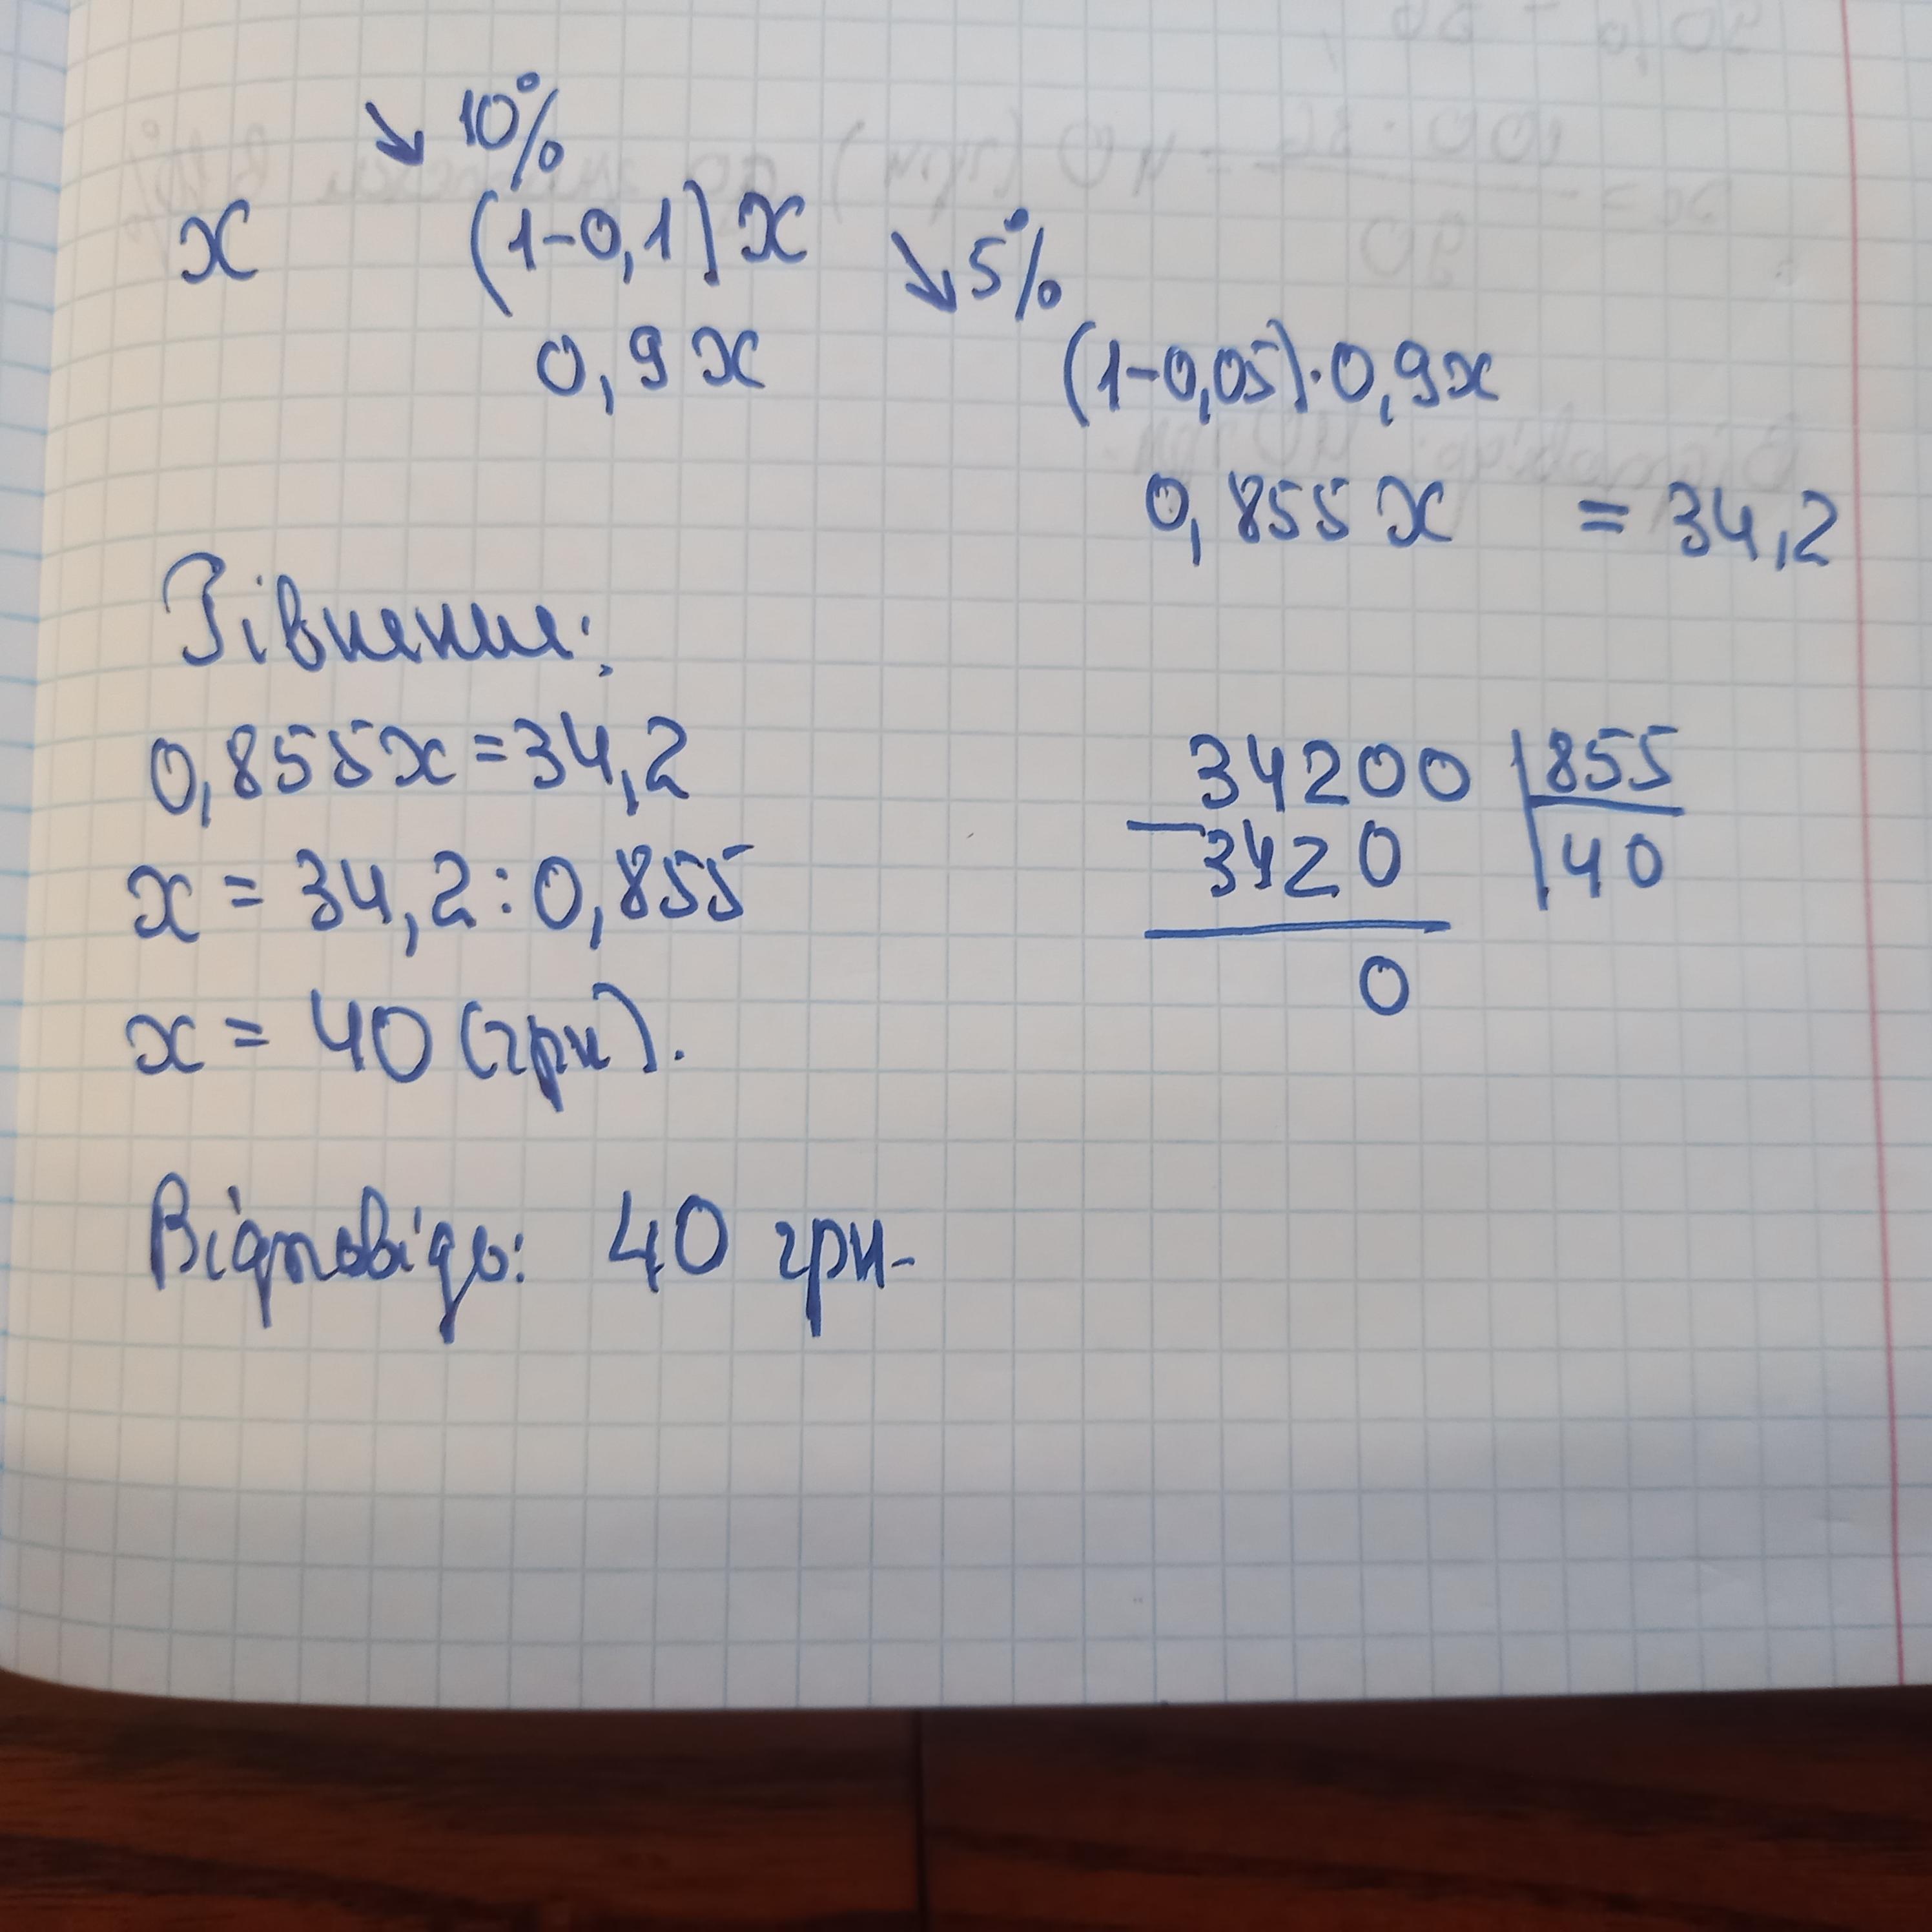 ↘ 10%
x (1-0,1)x ↘ 5%
0,9x (1-0,05)·0,9x
0,855x = 34,2
Рівняння:
0,855x=34,2
x = 34,2:0,855
x = 40 (грн).
34200 | 855
- 3420 | 40
0
Відповідь: 40 грн.